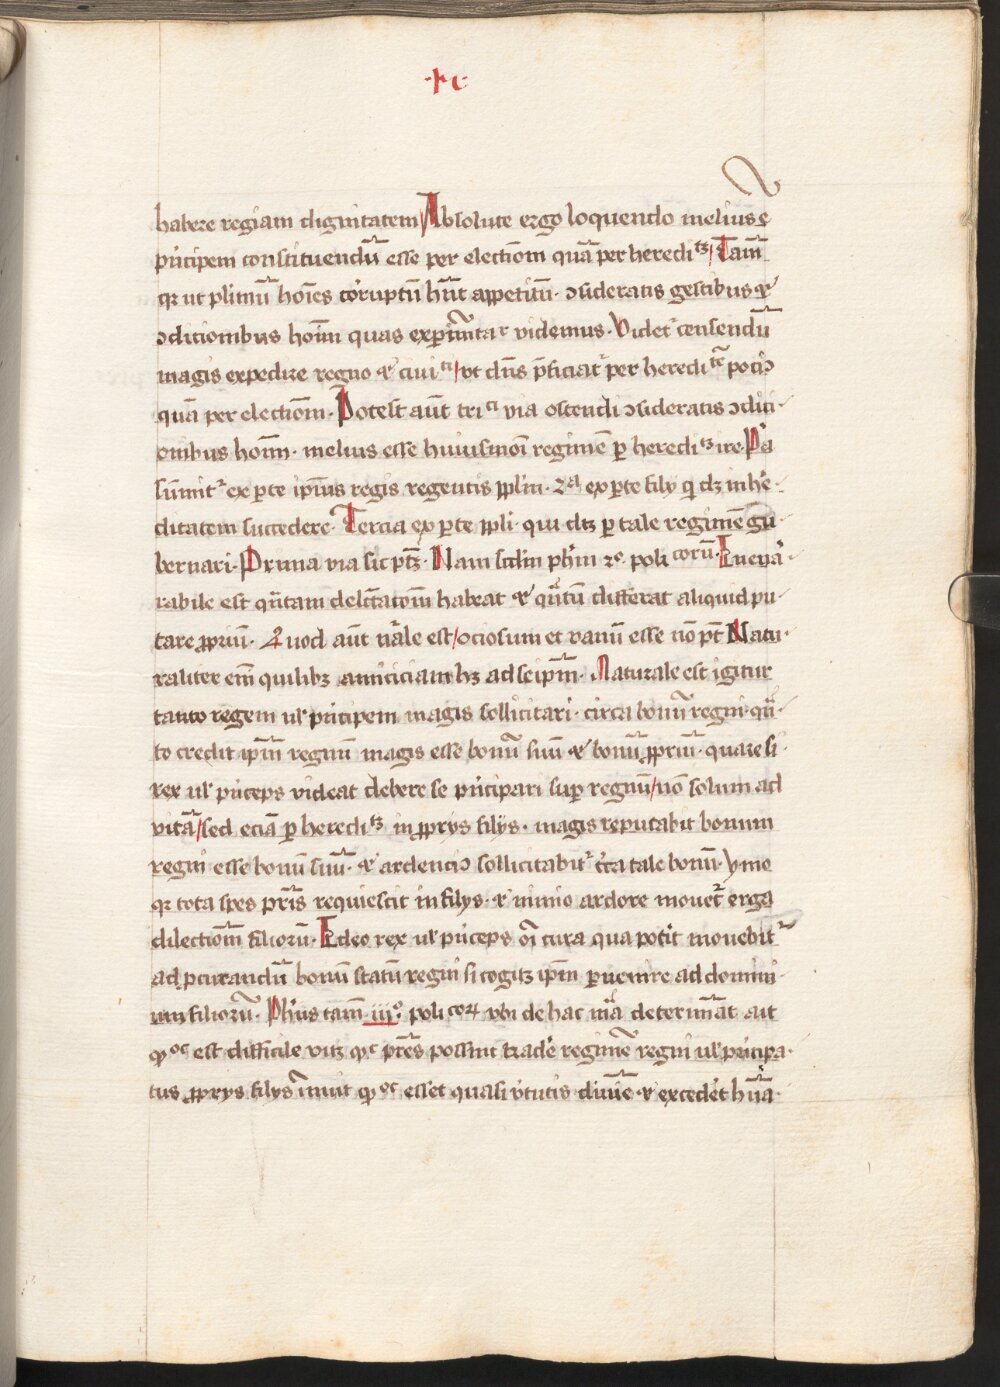 ·r c·
habere regiam dignitatem Absolute ergo loquendo melius e
pͥncipem constituendū esse per electiom̄ quā per heredi tꝫ / Tam̄
qꝛ ut plimū hoīes corruptū hn̄t appetitū · ↄsideratis gestibus ⁊
ↄditionibus hoīm quas experimētaꝛ videmus · Videt᷑ censendū
magis expedire regno ⁊ ciui ti / vt dn̄s p̄ficiat᷑ per heredi tē pociꝰ
quā per electiom̄ · Potest aūt tri ci via ostendi ↄsideratis ↄditi·
onibus hoīm · melius esse huiusmoi regimē ꝑ heredi tꝫ ire · Pᵃ
sūmit᷑ ex ꝑte ip̄ius regis regentis ppl̄m · 2ᵃ ex ꝑte filij q dꝫ in he·
ditatem succedere · Tercia ex ꝑte ppli · qui dꝫ ꝑ tale regimē gu
bernari · Prima via sic ptꝫ · Nam scdm̄ ph̄m 2º poli corū · Inena·
rabile est qn̄tam delc̄tatom̄ habeat ⁊ qn̄tū differat aliquid pu·
tare ꝓpriū · Quod aūt nāle est / ociosum et vanū esse nō pt̄ Natu·
raliter em̄ quilibꝫ amiciciam hꝫ ad seip̄m · Naturale est igitur
tanto regem ul' pͥncipem magis sollicitari · circa bonū regni · quā·
to credit ip̄m regnū magis esse bonū suū ⁊ bonū ꝓpriū · quare si ·
rex ul' pͥnceps videat debere se pͥncipari suꝑ regnū / nō solum ad
vitā / sed eciā ꝑ heredi tꝫ in ꝓprijs filijs · magis reputabit bonum
regni esse bonū suū · ⁊ ardenciꝰ sollicitabit᷑ cͥca tale bonū · ymo
qꝛ tota spes pr̄is requiescit in filijs · ⁊ nimio ardore mouet᷑ erga
dilectiom̄ filiorū · Ideo rex ul' pͥnceps oī cura qua potit mouebit᷑
ad ꝓcurandū bonū statū regni si cogitꝫ ip̄m ꝑuenire ad domini·
um filiorū · Ph̄us tam̄ iijº · poli coꝝ vbi de hac mͣa determīat ait
ꝙ oc est difficile vitꝫ ꝙ pr̄es possint tradē regimē regni ul' pͥncipa·
tus ꝓprijs filijs īnuit ꝙ oc esset quasi vͥtutis diuīe ⁊ excedet hūa·